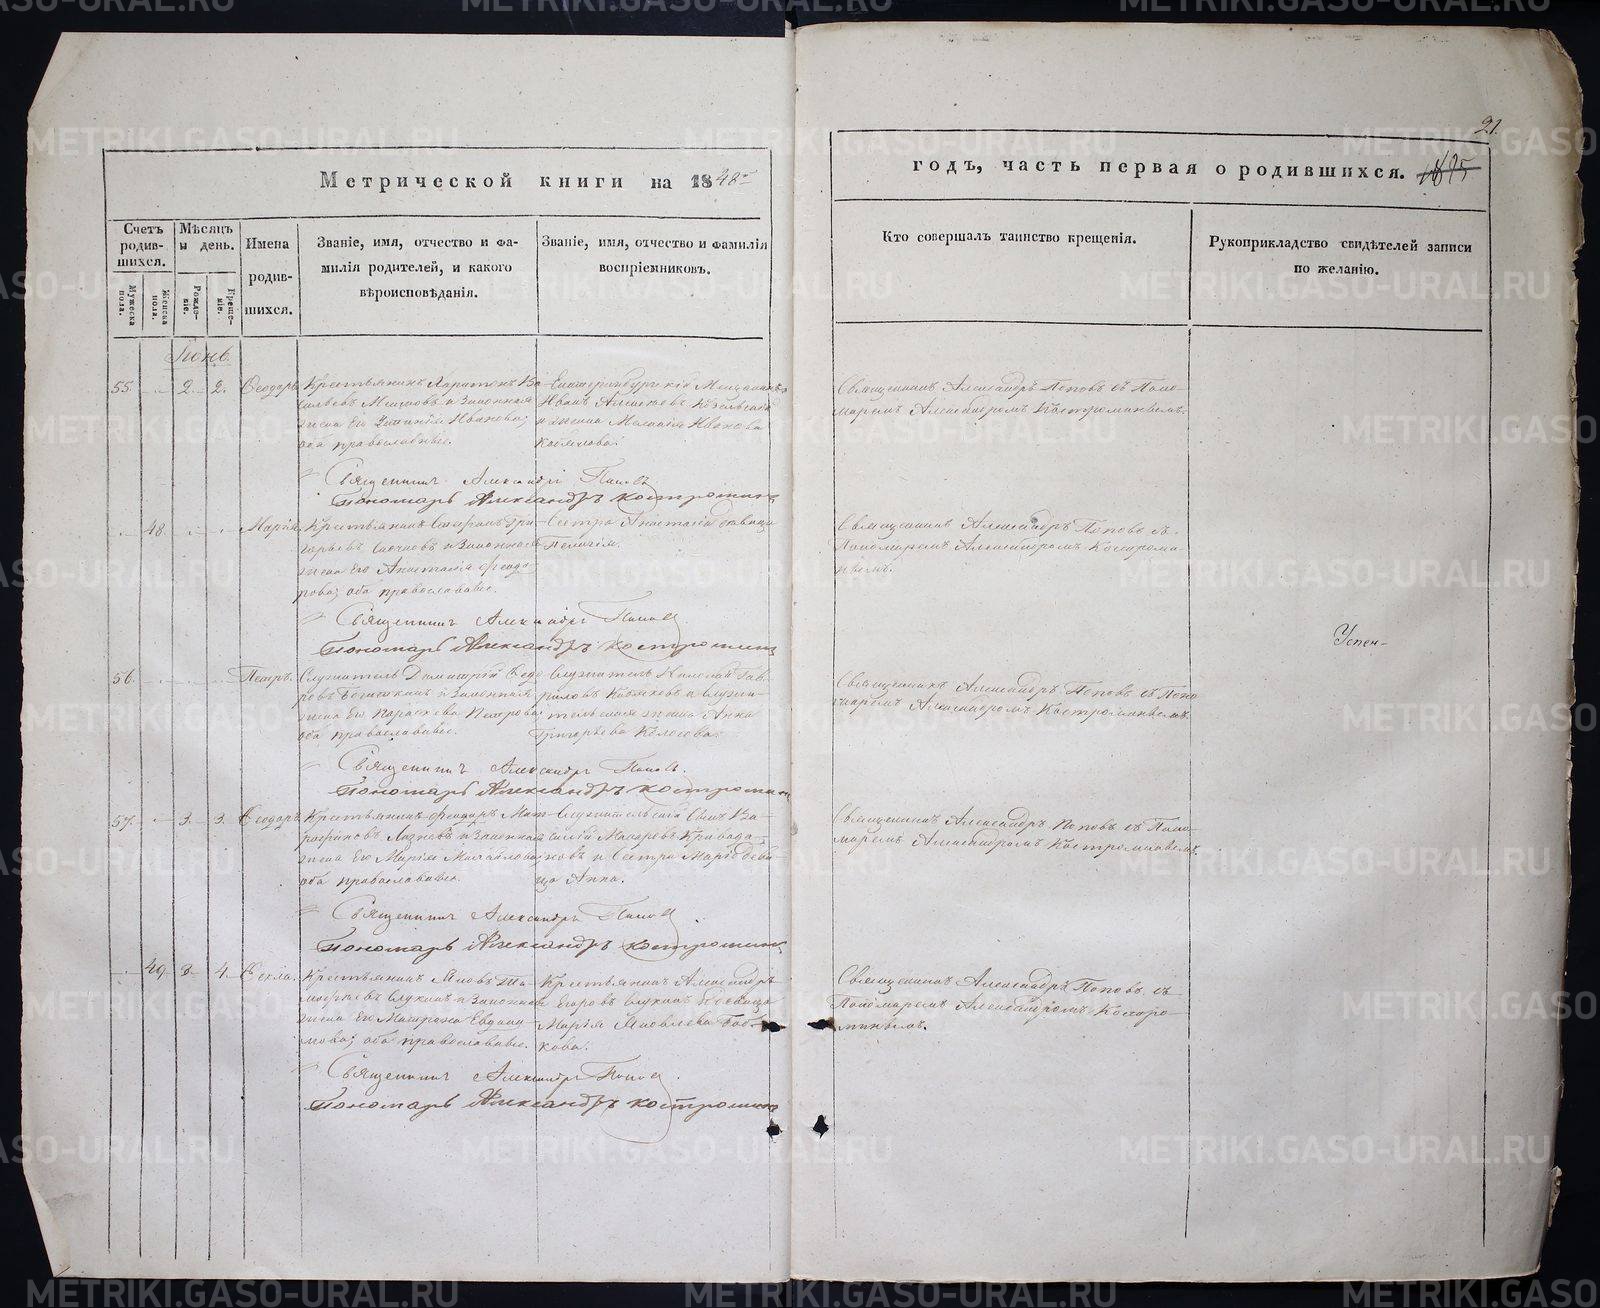 21.
Метрической книги на 1848
годъ, часть первая о родившихся. 1895
Счетъ родив-шихся.
Мужеска пола.
Женска пола.
Мѣсяцъ и день.
Рожде-ніе.
Креще-ніе.
Имена родив-шихся.
Званіе, имя, отчество и фа-
милія родителей, и какого
вѣроисповѣданія.
Званіе, имя, отчество и фамилія
воспріемниковъ.
Кто совершалъ таинство крещенія.
Рукоприкладство свидѣтелей записи
по желанію.
Іюнь.
55. 2. 2. Ѳеодоръ
Крестьянинъ Харитонъ Ва-
сильевъ и законная
жена его Ивановна;
оба православные.
Екатеринбургскій Мещанинъ
Иванъ Алексѣевъ
и жена Меланія Иванова
Священникъ Александръ Поповъ съ Поно-
маремъ Александромъ Костроминымъ.
Священникъ Александръ Поповъ
Пономарь Александръ Костроминъ
48. Марія
Крестьянинъ Гри-
горьевъ и законная
жена его Анастасія Ѳеодо-
рова; оба православные.
Сестра Анастасіи девица
Пелагія.
Священникъ Александръ Поповъ съ
Пономаремъ Александромъ Костроми-
нымъ.
Священникъ Александръ Поповъ
Пономарь Александръ Костроминъ
Успен-
56. Петръ.
Служитель Димитрій Ѳедо-
ровъ и законная
жена его Параскева Петрова;
оба православные.
Служитель Николай Гав-
риловъ и служи-
тельская жена Анна
Григорьева Колосова.
Священникъ Александръ Поповъ съ Поно-
маремъ Александромъ Костроминымъ.
Священникъ Александръ Поповъ.
Пономарь Александръ Костроминъ
57. 3. 3. Ѳеодоръ
Крестьянинъ Ѳеодоръ Мит-
рофановъ и законная
жена его Марія Михайлова;
оба православные.
Служительскій сынъ Ва-
силій Макаровъ
и сестра Маріи деви-
ца Анна.
Священникъ Александръ Поповъ съ Поно-
маремъ Александромъ Костроминымъ.
Священникъ Александръ Поповъ.
Пономарь Александръ Костроминъ
49. 3. 4. Ѳекла.
Крестьянинъ Яковъ Ти-
мофѣевъ и законная
жена его Матрона Евдоки-
мова; оба православные.
Крестьянинъ Александръ
Егоровъ и девица
Марія Яковлева Боб-
кова.
Священникъ Александръ Поповъ съ
Пономаремъ Александромъ Костро-
минымъ.
Священникъ Александръ Поповъ.
Пономарь Александръ Костроминъ
METRIKI.GASO-URAL.RU